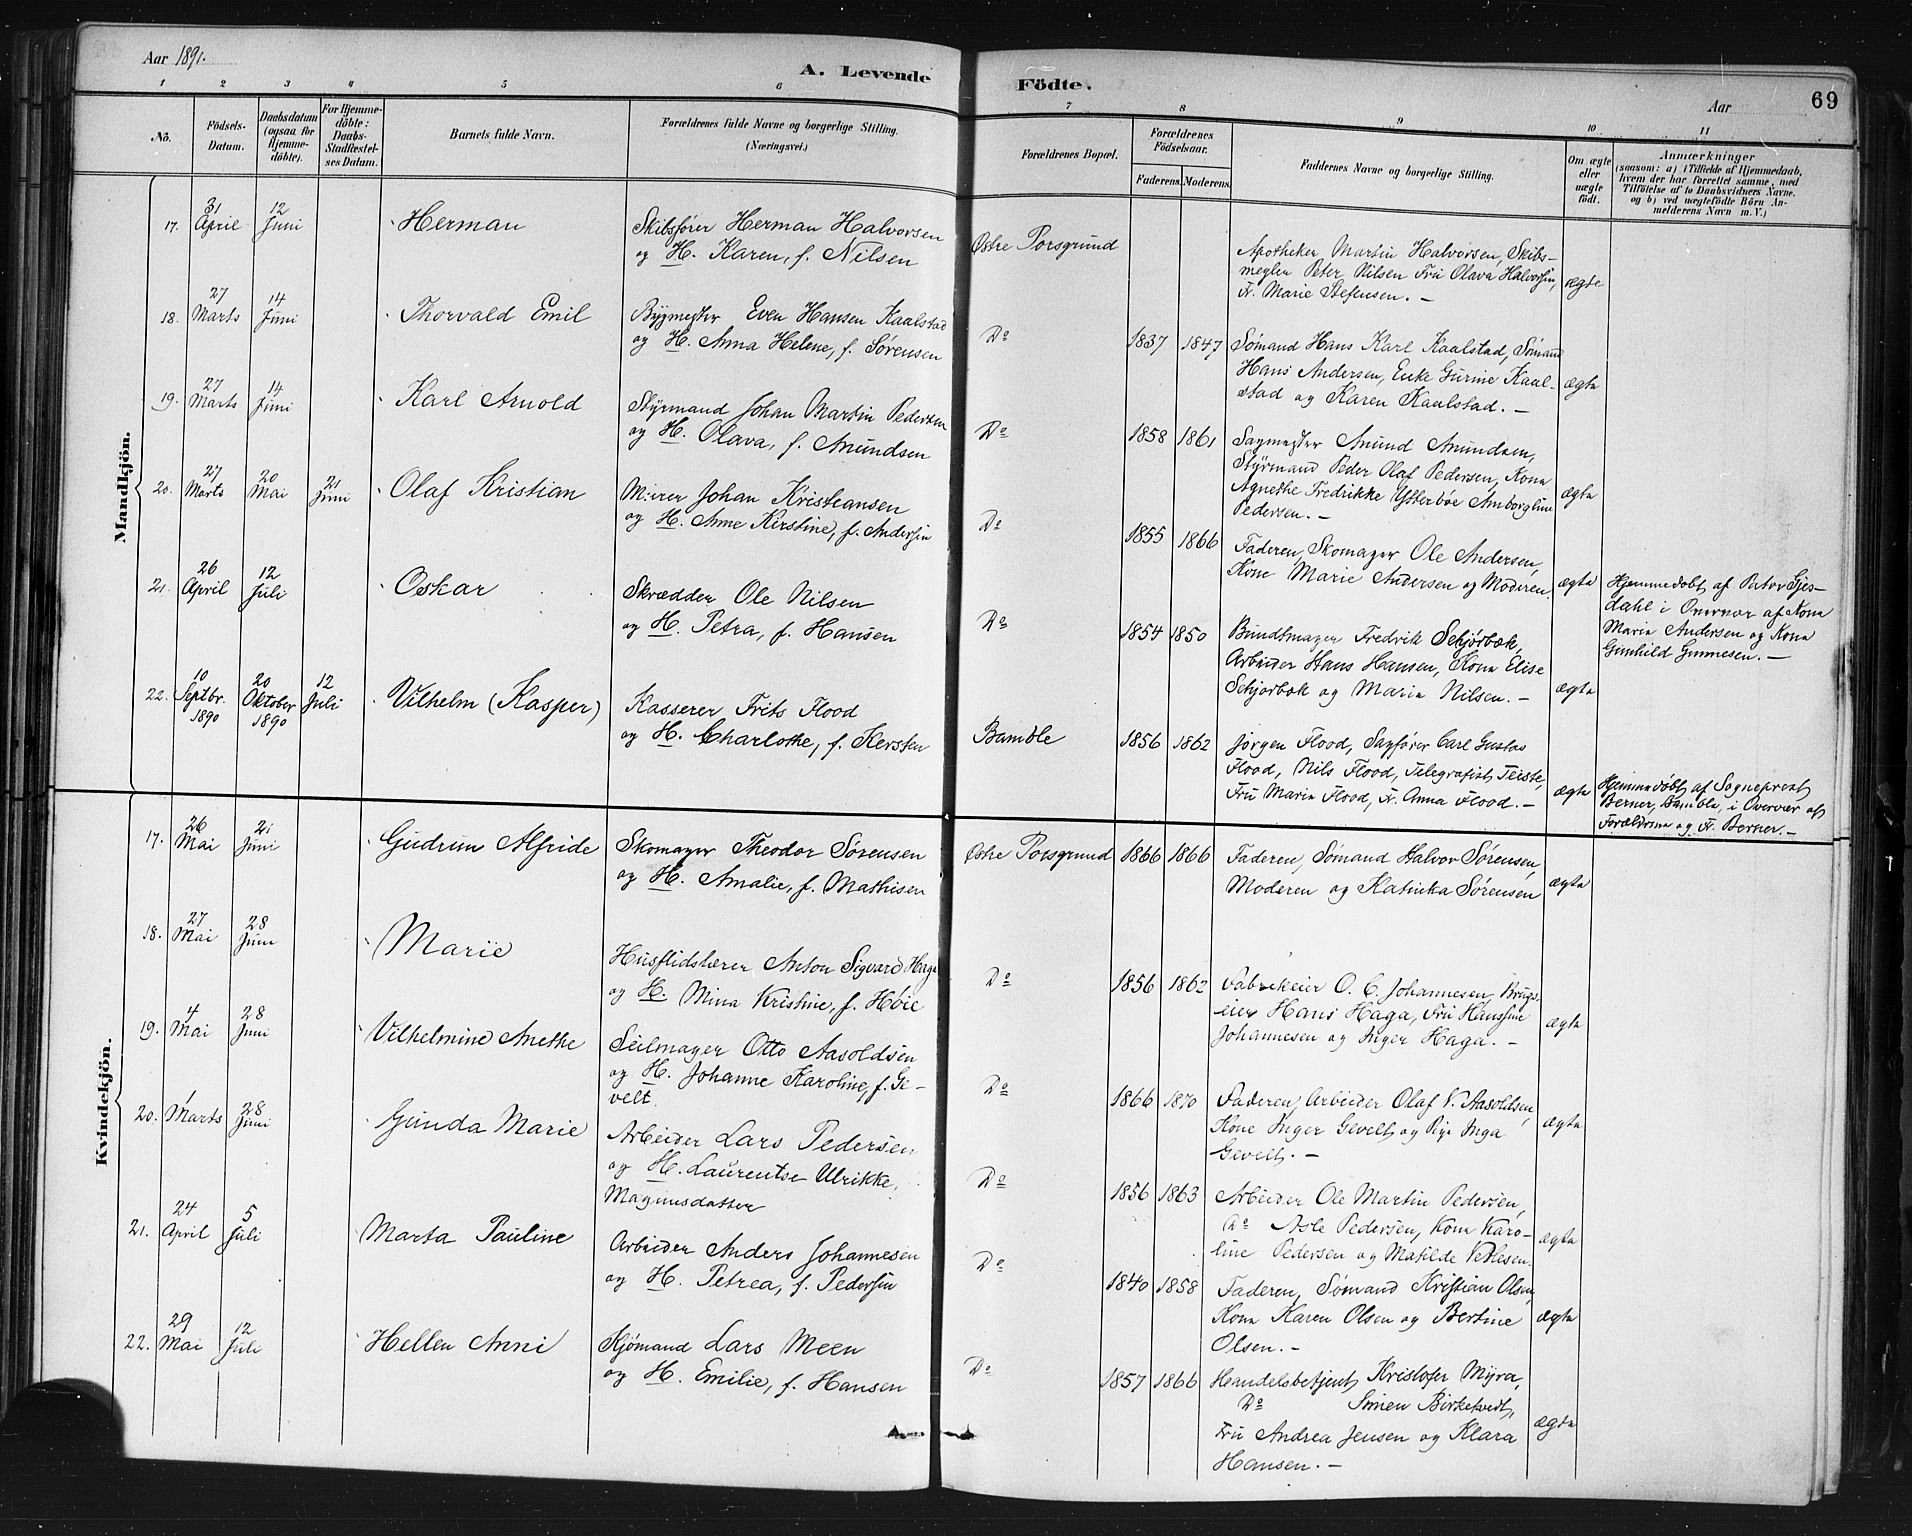 Aar 1891.
A. Levende
Födte.
Aar
69
1 2 3 4 5 6 7 8 9 10 11
No.
Födsels-Datum.
Daabsdatum (ogsaa for Hjemme-döbte).
For Hjemme-döbte: Daabs-Stadfæstel-ses Datum.
Barnets fulde Navn.
Forældrenes fulde Navne og borgerlige Stilling. (Næringsvei.)
Forældrenes Bopæl.
Forældrenes Födselsaar.
Faderens. Moderens.
Faddernes Navne og borgerlige Stilling.
Om ægte eller uægte födt.
Anmærkninger
(saasom: a) i Tilfælde af Hjemmedaab,
hvem der har forrettet samme, med
Tilföielse af to Daabsvidners Navne.
og b) ved uægtefödte Börn An-
melderens Navn m. V.)
Mandkjön.
17. 31 April 12 Juni Herman
Skibsfører Herman Halvorsen
og H. Karen, f. Nilsen
Østre Porsgrund
Apotheker Martin Halvorsen, Skibs-
megler Peter Nilsen Fru Olava Halvorsen,
Fr. Marie Stefensen. —
ægte
18. 27 Marts 14 Juni Thorvald Emil
Bygmester Even Hansen Kaalstad
og H. Anna Helene, f. Sørensen
Do 1837 1847
Sømand Hans Karl Kaalstad, Sømand
Hans Andersen, Enke Gurine Kaal-
stad og Karen Kaalstad. —
ægte
19. 27 Marts 14 Juni Karl Arnold
Styrmand Johan Martin Pedersen
og H. Olava, f. Amundsen
Do 1858 1861
Sagmester Amund Amundsen,
Styrmand Peder Olaf Pedersen, Kone
Agnethe Fredrikke Ytterbøe
Pedersen. —
ægte
20. 27 Marts 20 Mai 21 Juni Olaf Kristian
Murer Johan Kristiansen
og H. Anne Kirstine, f. Andersen
Do 1855 1866
Faderen, Skomager Ole Andersen,
Kone Marie Andersen og Moderen.
ægte
Hjemmedøbt af Pastor Gjes-
dahl i Overvær af Kone
Marie Andersen og Kone
Gunhild Gunnesen. —
21. 26 April 12 Juli Oskar
Skrædder Ole Nilsen
og H. Petra, f. Hansen
Do 1854 1850
Bundtmager Fredrik Schjørbæk,
Arbeider Hans Hansen, Kone Elise
Schjørbæk og Marie Nilsen. —
ægte
22. 10 Septbr. 1890 20 Oktober 1890 12 Juli Vilhelm (Kasper)
Kasserer Frits Flood
og H. Charlothe, f. Kersten
Bamble 1856 1862
Jørgen Flood, Sagfører Carl Gustav
Flood, Nils Flood, Telegrafist Teiste,
Fru Marie Flood, Fr. Anna Flood. —
ægte
Hjemmedøbt af Sogneprest
Berner, Bamble, i Overvær af
Forældrene og Fr. Berner. —
Kvindekjön.
17. 26 Mai 21 Juni Gudrun Alfride
Skomager Theodor Sørensen
og H. Amalie, f. Mathisen
Østre Porsgrund 1866 1866
Faderen, Sømand Halvor Sørensen,
Moderen og Katinka Sørensen
ægte
18. 27 Mai 28 Juni Marie
Husflidslærer Anton Sigvard Haga
og H. Mina Kristine, f. Høie
Do 1856 1862
Fabrikeier O. C. Johannesen, Brugs-
eier Hans Haga, Fru Hansine
Johannesen og Inger Haga. —
ægte
19. 4 Mai 28 Juni Vilhelmine Anethe
Seilmager Otto Aasoldsen
og H. Johanne Karoline, f. Ge-
velt.
Do 1866 1870
Faderen, Arbeider Olaf V. Aasoldsen,
Kone Inger Gevelt og Pige Inga
Gevelt. —
ægte
20. 1 Marts 28 Juni Gunda Marie
Arbeider Lars Pedersen
og H. Laurentse Ulrikke,
Magnusdatter
Do 1856 1863
Arbeider Ole Martin Pedersen,
Do Asle Pedersen, Kone Karo-
line Pedersen og Matilde Vetlesen.
ægte
21. 24 April 5 Juli Marta Pauline
Arbeider Anders Johannesen
og H. Petrea, f. Pedersen
Do 1840 1858
Faderen, Sømand Kristian Olsen,
Kone Karen Olsen og Bertine
Olsen. —
ægte
22. 29 Mai 12 Juli Hellen Anni
Sjømand Lars Meen
og H. Emilie, f. Hansen
Do 1857 1866
Handelsbetjent Kristofer Myra,
Do Simen Birketvedt,
Fru Andrea Jensen og Klara
Hansen. —
ægte